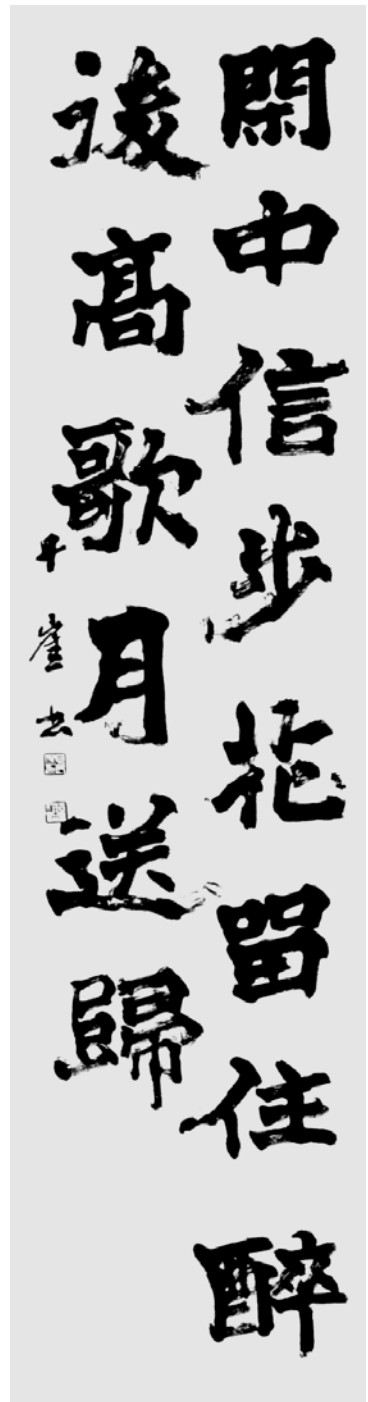 閑中信步花留住醉
後高歌月送歸
千崖书